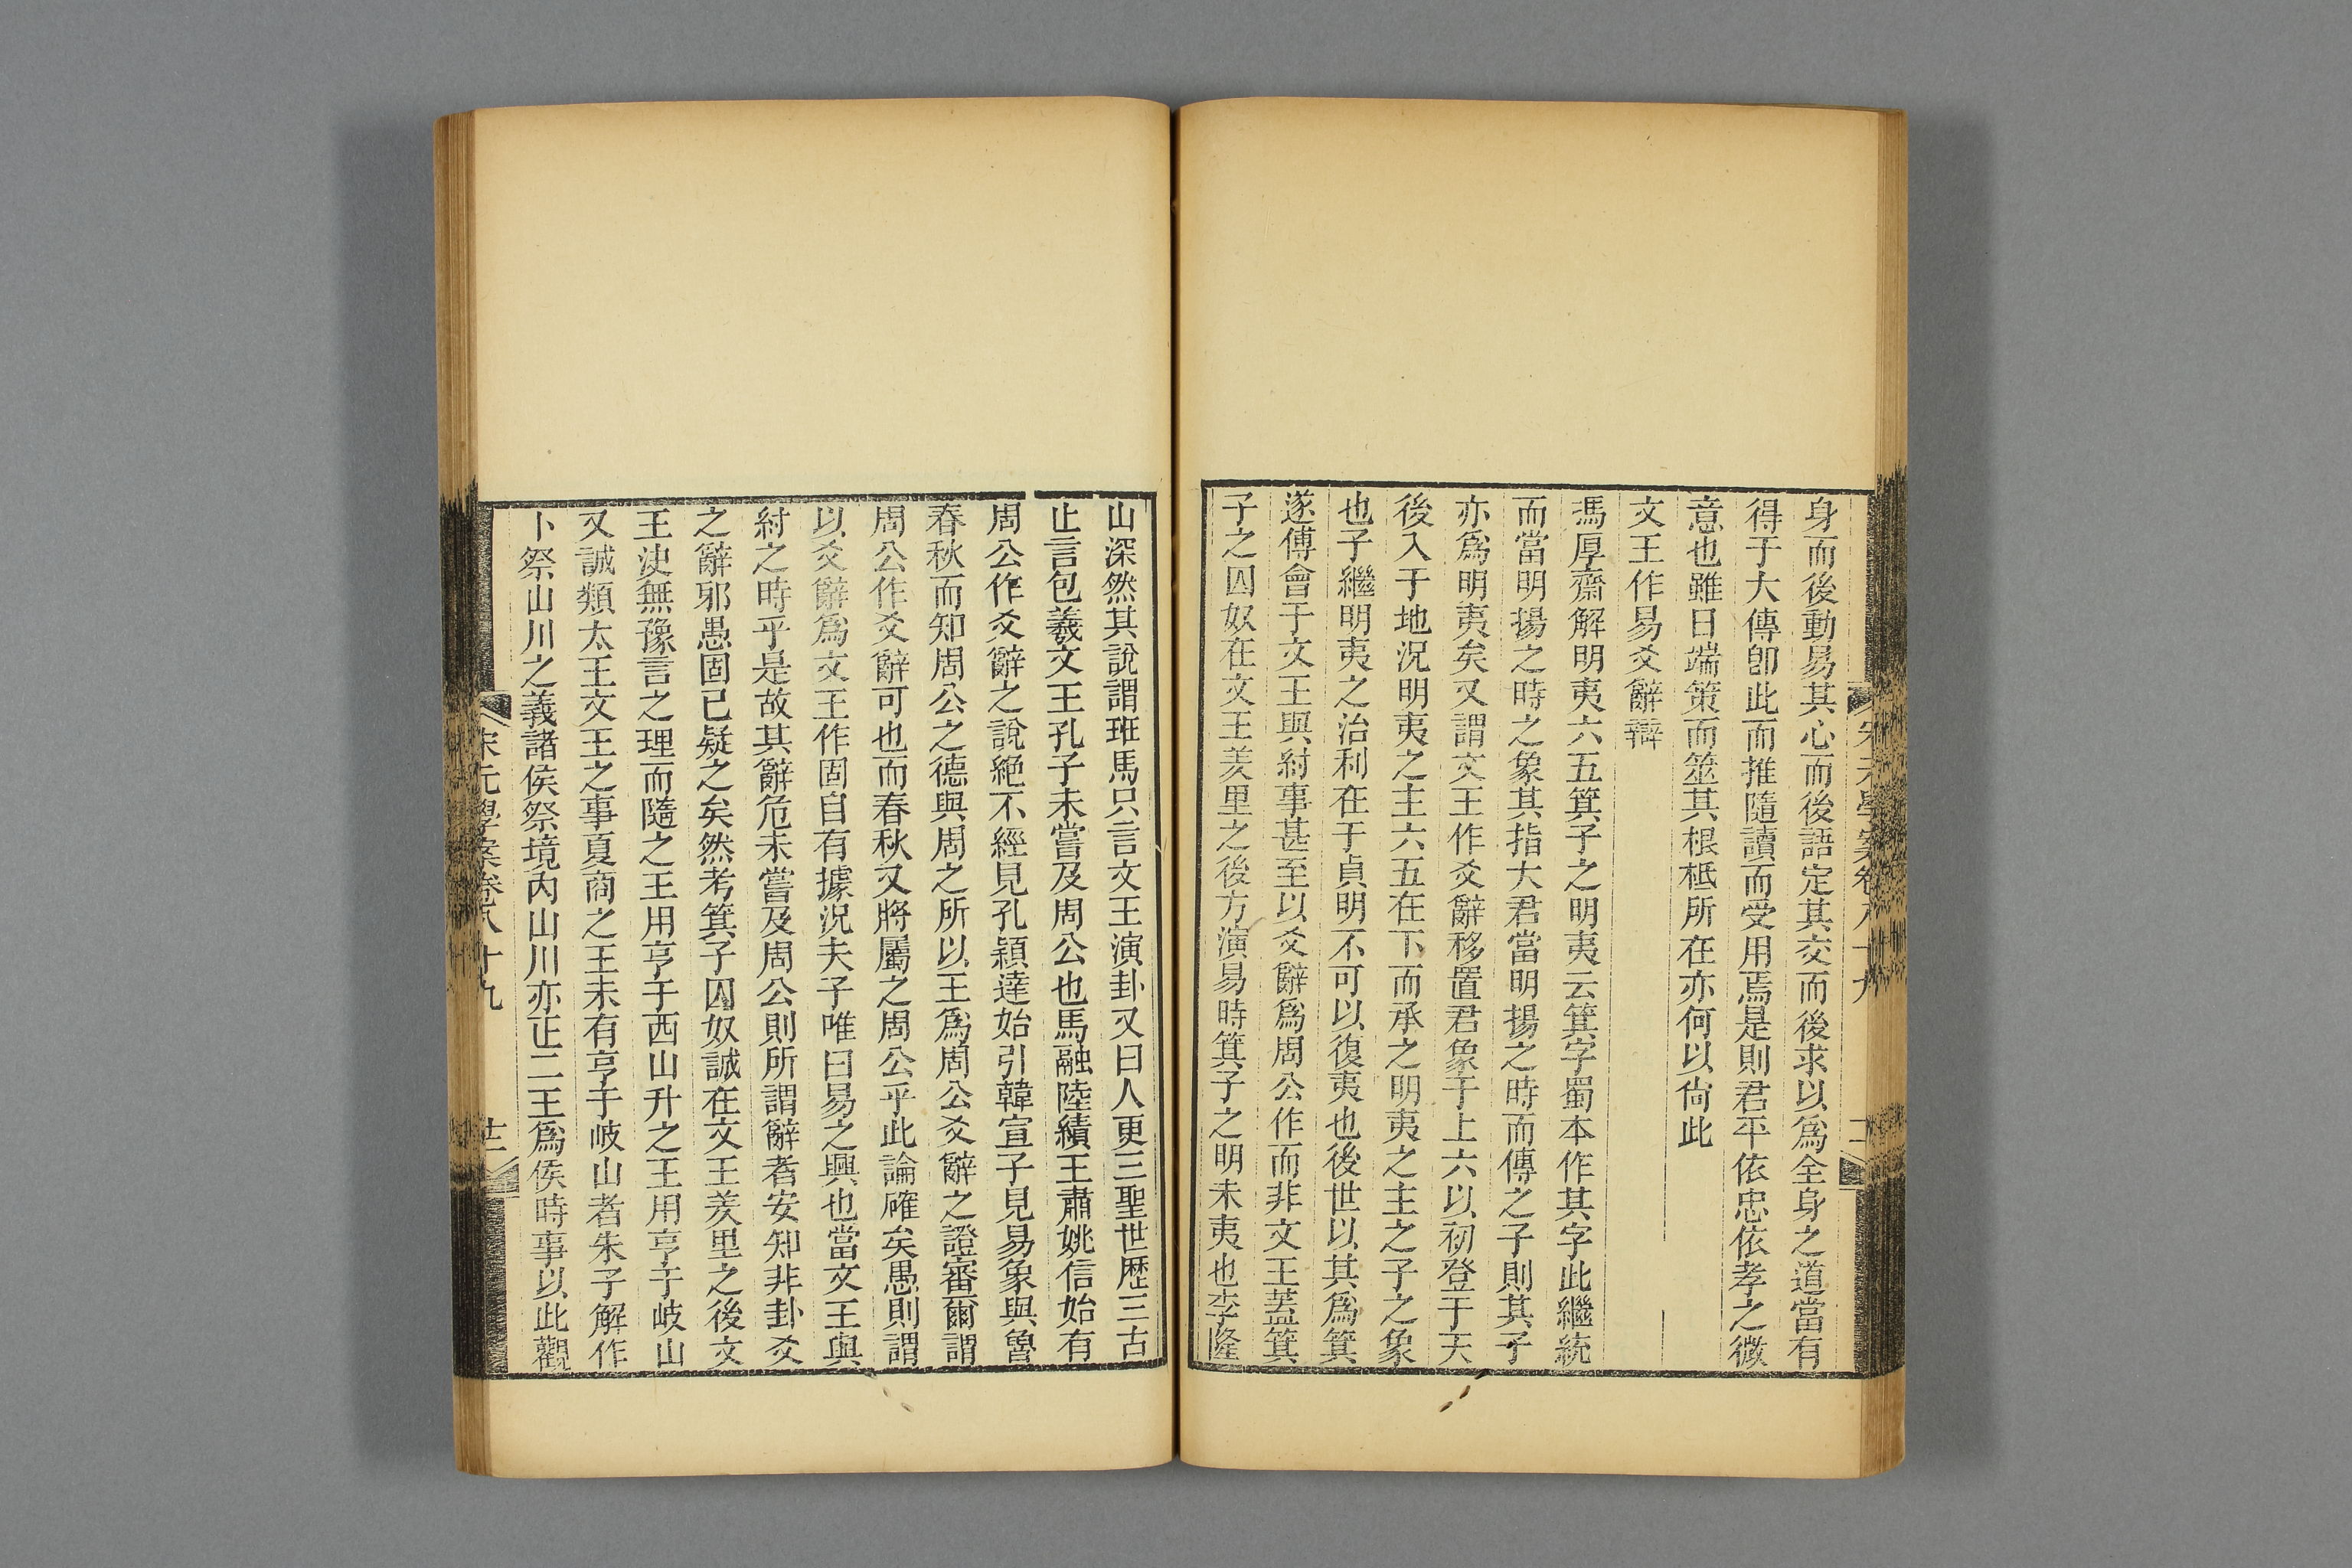 身而後動易其心而後語定其交而後求以爲全身之道當有
得于大傳卽此而推隨讀而受用焉是則君平依忠依孝之微
意也雖日端策而筮其根柢所在亦何以尙此
文王作易爻辭辯
馮厚齋解明夷六五箕子之明夷云箕字蜀本作其字此繼統
而當明揚之時之象其指大君當明揚之時而傳之子則其子
亦爲明夷矣又謂文王作爻辭移置君象于上六以初登于天
後入于地況明夷之主六五在下而承之明夷之主之子之象
也子繼明夷之治利在于貞明不可以復夷也後世以其爲箕
遂傅會于文王與紂事甚至以爻辭爲周公作而非文王蓋箕
子之囚奴在文王羑里之後方演易時箕子之明未夷也李隆
山深然其說謂班馬只言文王演卦又曰人更三聖世歷三古
止言包羲文王孔子未嘗及周公也馬融陸績王肅姚信始有
周公作爻辭之說絕不經見孔穎達始引韓宣子見易象與魯
春秋而知周公之德與周之所以王爲周公爻辭之證審爾謂
周公作爻辭可也而春秋又將屬之周公乎此論確矣愚則謂
以爻辭爲文王作固自有據況夫子唯曰易之興也當文王與
紂之時乎是故其辭危未嘗及周公則所謂辭者安知非卦爻
之辭邪愚固已疑之矣然考箕子囚奴誠在文王羑里之後文
王決無豫言之理而隨之王用亨于西山升之王用亨于岐山
又誠類太王文王之事夏商之王未有亨于岐山者朱子解作
卜祭山川之義諸侯祭境內山川亦正二王爲侯時事以此觀
宋元學案卷八十九